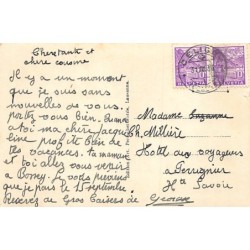 Chère tante et
chère cousine
Il y a un moment
que je suis sans
nouvelles de vous.
portez vous bien.
a toi ma chère Jacque
line profite bien de
tes vacances. ta maman
et toi allez vous venir
à Bornay. Je vous préviens
que je pars le 15 septembre
Recevez de Gros Baisers de Geor
Madame
Ch. Millière
Hotel des voyageurs
à Perrignier
Hte Savoie
HELVETIA
HELVETIA
10